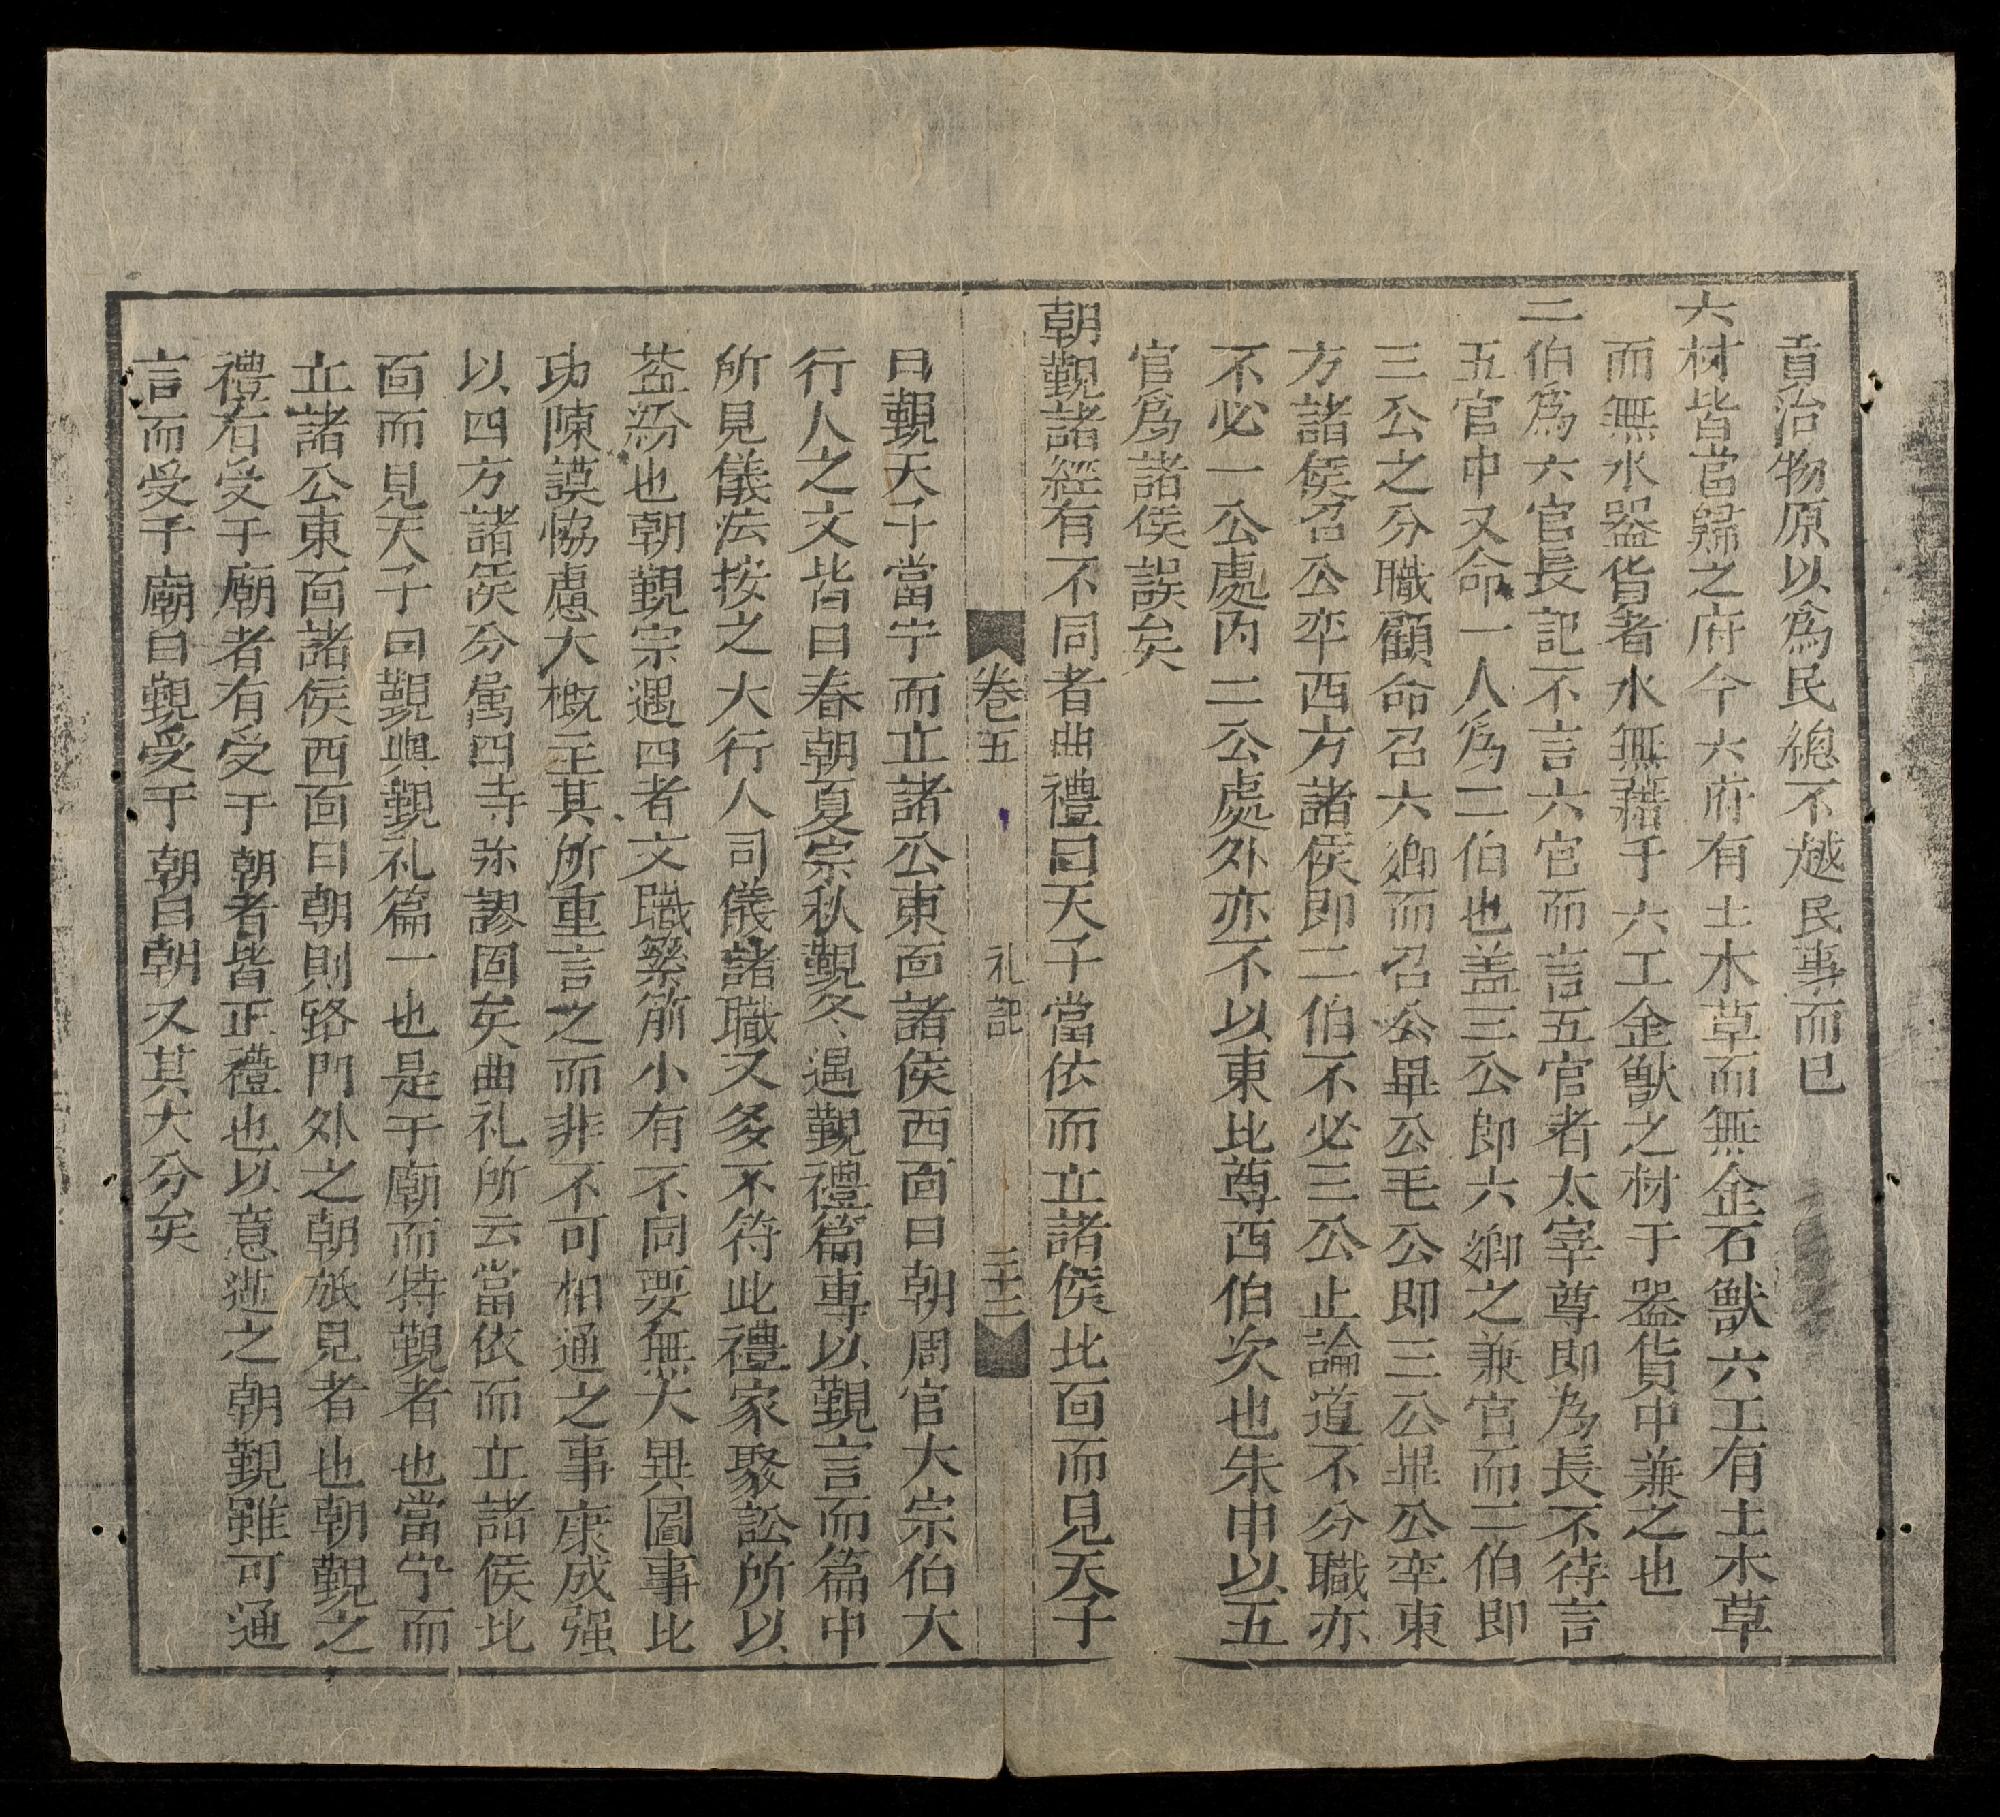 貢治物原以為民總不越民事而已
六材皆當歸之府今六府有土木草而無金石獸六工有土木草
而無水器貨者水無藉于六工金獸之材于器貨中兼之也
二伯為六官長記不言六官而言五官者太宰尊即為長不待言
五官中又命一人為二伯也盖三公即六卿之兼官而二伯即
三公之分職顧命召六卿而召公畢公毛公即三公畢公率東
方諸侯召公率西方諸侯即二伯不必三公止論道不分職亦
不必一公處內二公處外亦不以東比尊西伯次也朱申以五
官為諸侯誤矣
朝覲諸經有不同者曲禮曰天子當依而立諸侯北面而見天子
卷五 礼記 二十三
曰覲天子當宁而立諸公東面諸侯西面曰朝周官大宗伯大
行人之文皆曰春朝夏宗秋覲冬遇覲禮篇專以覲言而篇中
所見儀法按之大行人司儀諸職又多不符此禮家聚訟所以
益紛也朝覲宗遇四者文職繁簡小有不同要無大異圖事比
功陳謨恊慮大概主其所重言之而非不可相通之事康成强
以四方諸侯分屬四寺殊謬固矣曲礼所云當依而立諸侯北
面而見天子曰覲與覲礼篇一也是于廟而特覲者也當宁而
立諸公東面諸侯西面曰朝則路門外之朝旅見者也朝覲之
禮有受于廟者有受于朝者皆正禮也以意逆之朝覲雖可通
言而受于廟曰覲受于朝曰朝又其大分矣